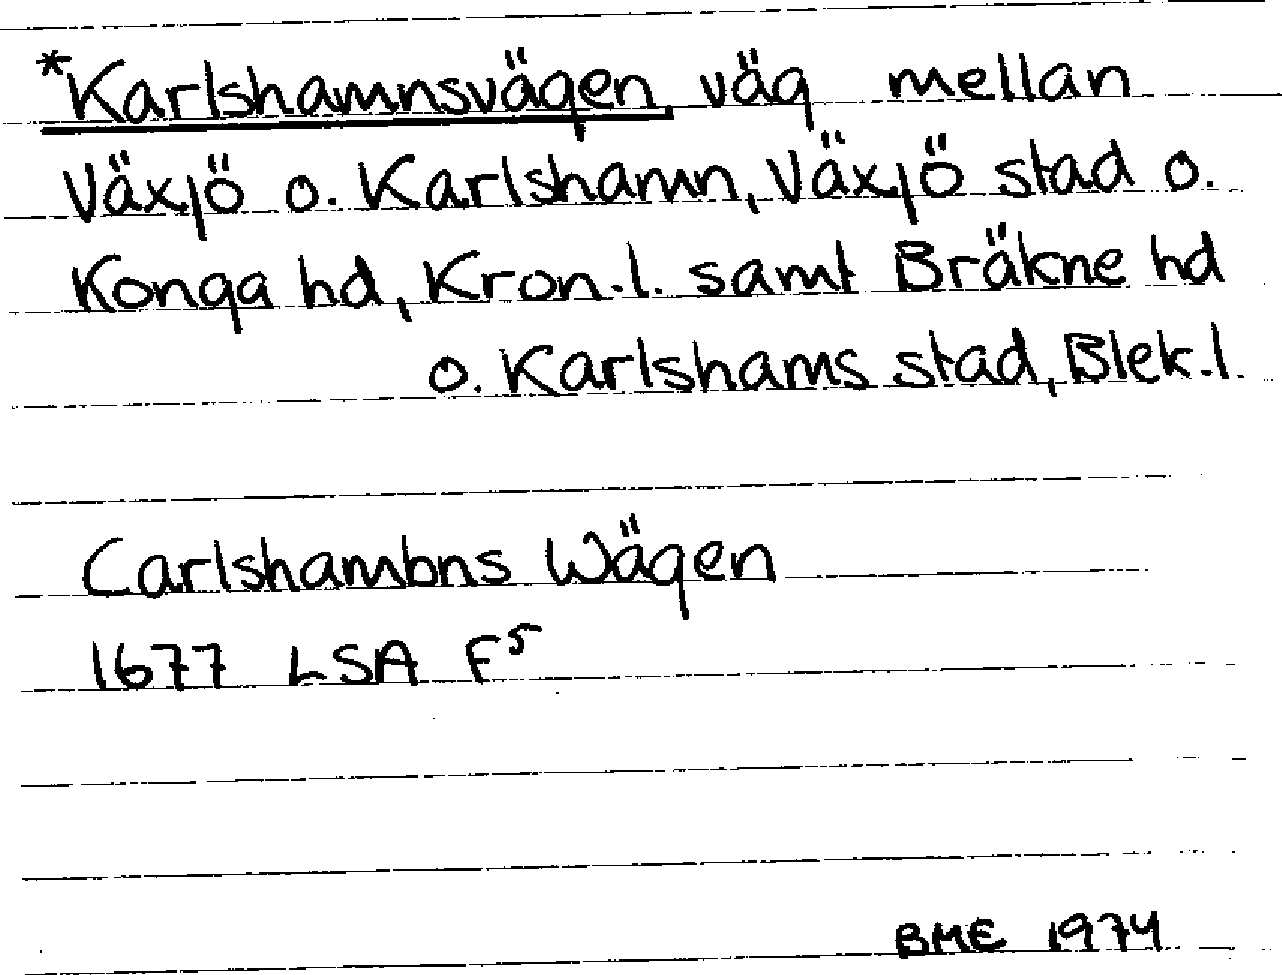 *Karlshamnsvägen, väg mellan
Växjö o. Karlshamn, Växjö stad o.
Konga hd, Kron.l. samt Bräkne hd
o. Karlshams stad, Blek.l.
Carlshambns Wägen
1677 LSA F⁵
BME 1974